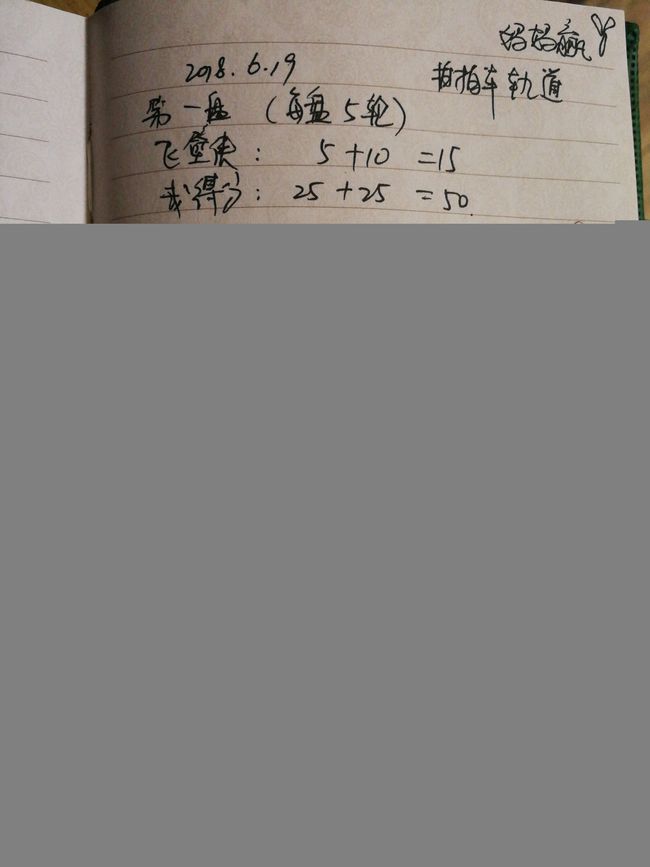 妈妈赢
2018.6.19 拍拍车轨道
第一盘 (每盘5轮)
飞堡侠: 5+10 =15
我得了: 25+25 =50